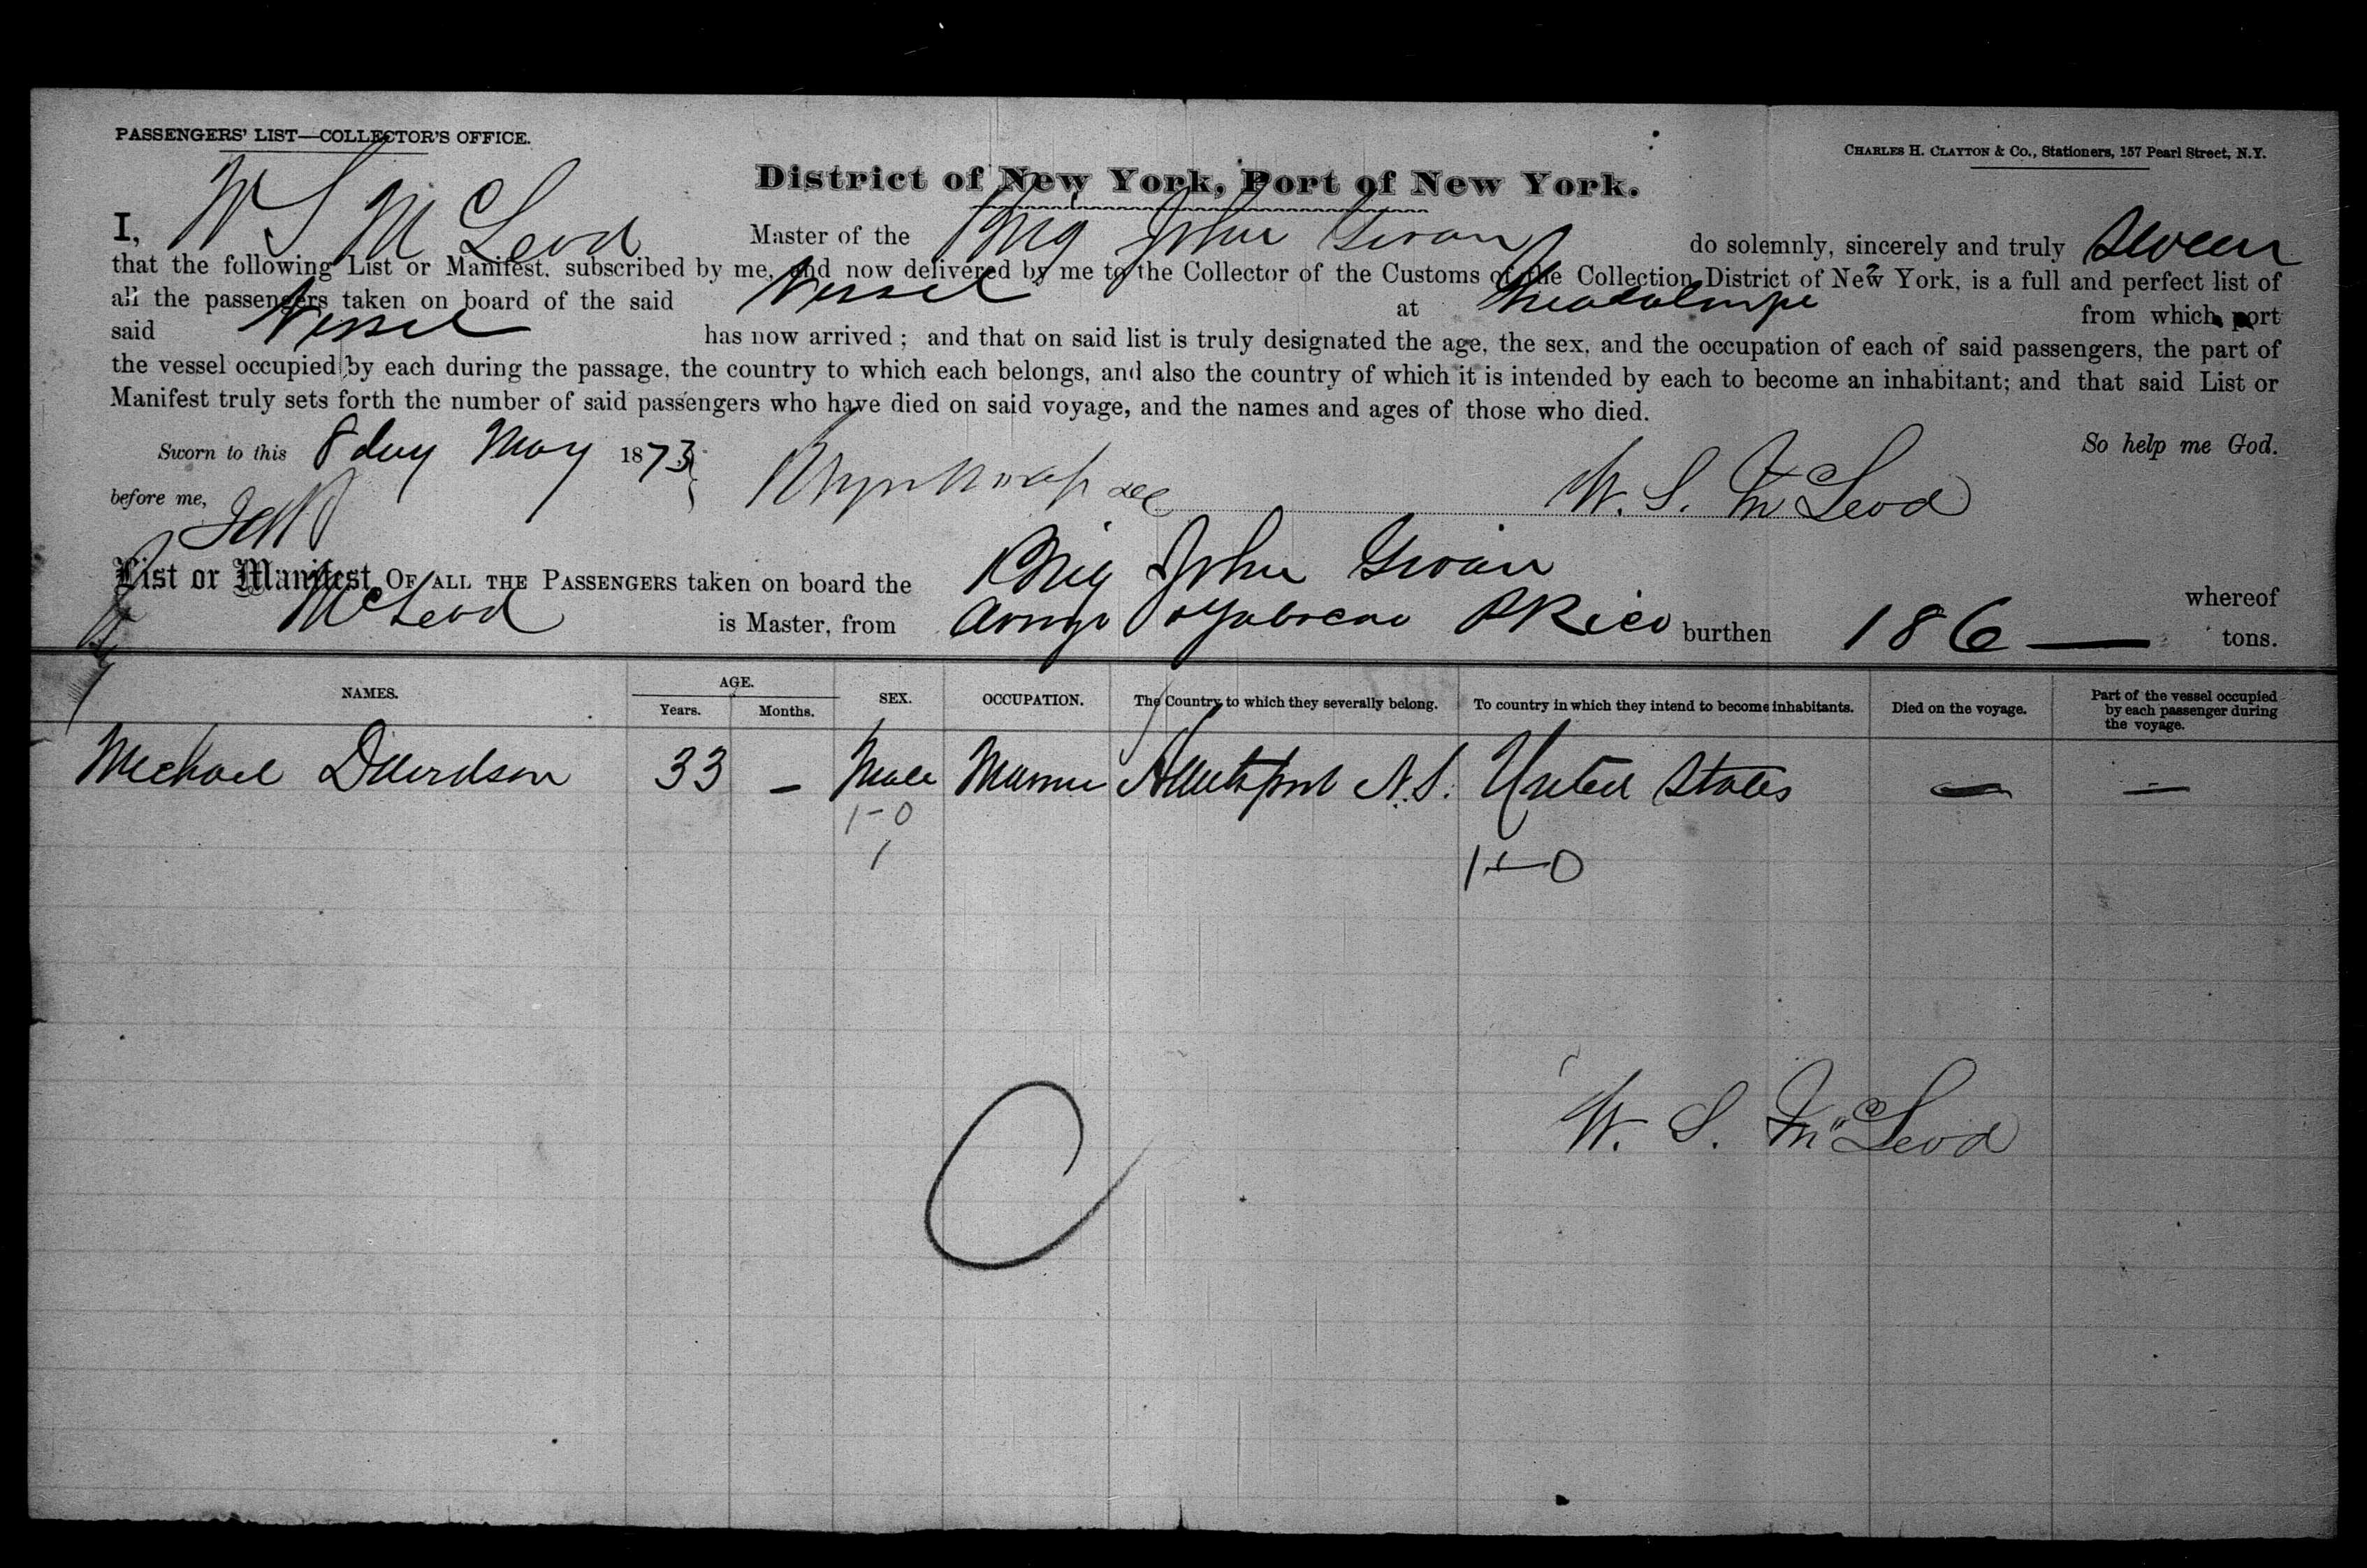 PASSENGERS' LIST—COLLECTOR'S OFFICE.
CHARLES H. CLAYTON & CO., Stationers, 157 Pearl Street, N.Y.
District of New York, Port of New York.
I, W S Mc Leod Master of the Brig John Swan do solemnly, sincerely and truly Swear
that the following List or Manifest, subscribed by me, and now delivered by me to the Collector of the Customs of the Collection District of New York, is a full and perfect list of
all the passengers taken on board of the said Vessel at Guadalupe from which port
said Vessel has now arrived; and that on said list is truly designated the age, the sex, and the occupation of each of said passengers, the part of
the vessel occupied by each during the passage, the country to which each belongs, and also the country of which it is intended by each to become an inhabitant; and that said List or
Manifest truly sets forth the number of said passengers who have died on said voyage, and the names and ages of those who died.
Sworn to this 8 day May 1873 So help me God.
before me, W. S. McLeod
List or Manifest OF ALL THE PASSENGERS taken on board the Brig John Swan whereof
McLeod is Master, from P Rico burthen 186 — tons.
NAMES. AGE. Years. Months. SEX. OCCUPATION. The Country to which they severally belong. To country in which they intend to become inhabitants. Died on the voyage. Part of the vessel occupied by each passenger during the voyage.
Michael Davidson 33 – Male N.S. United States — —
1-0
1
1-0
W. S. McLeod